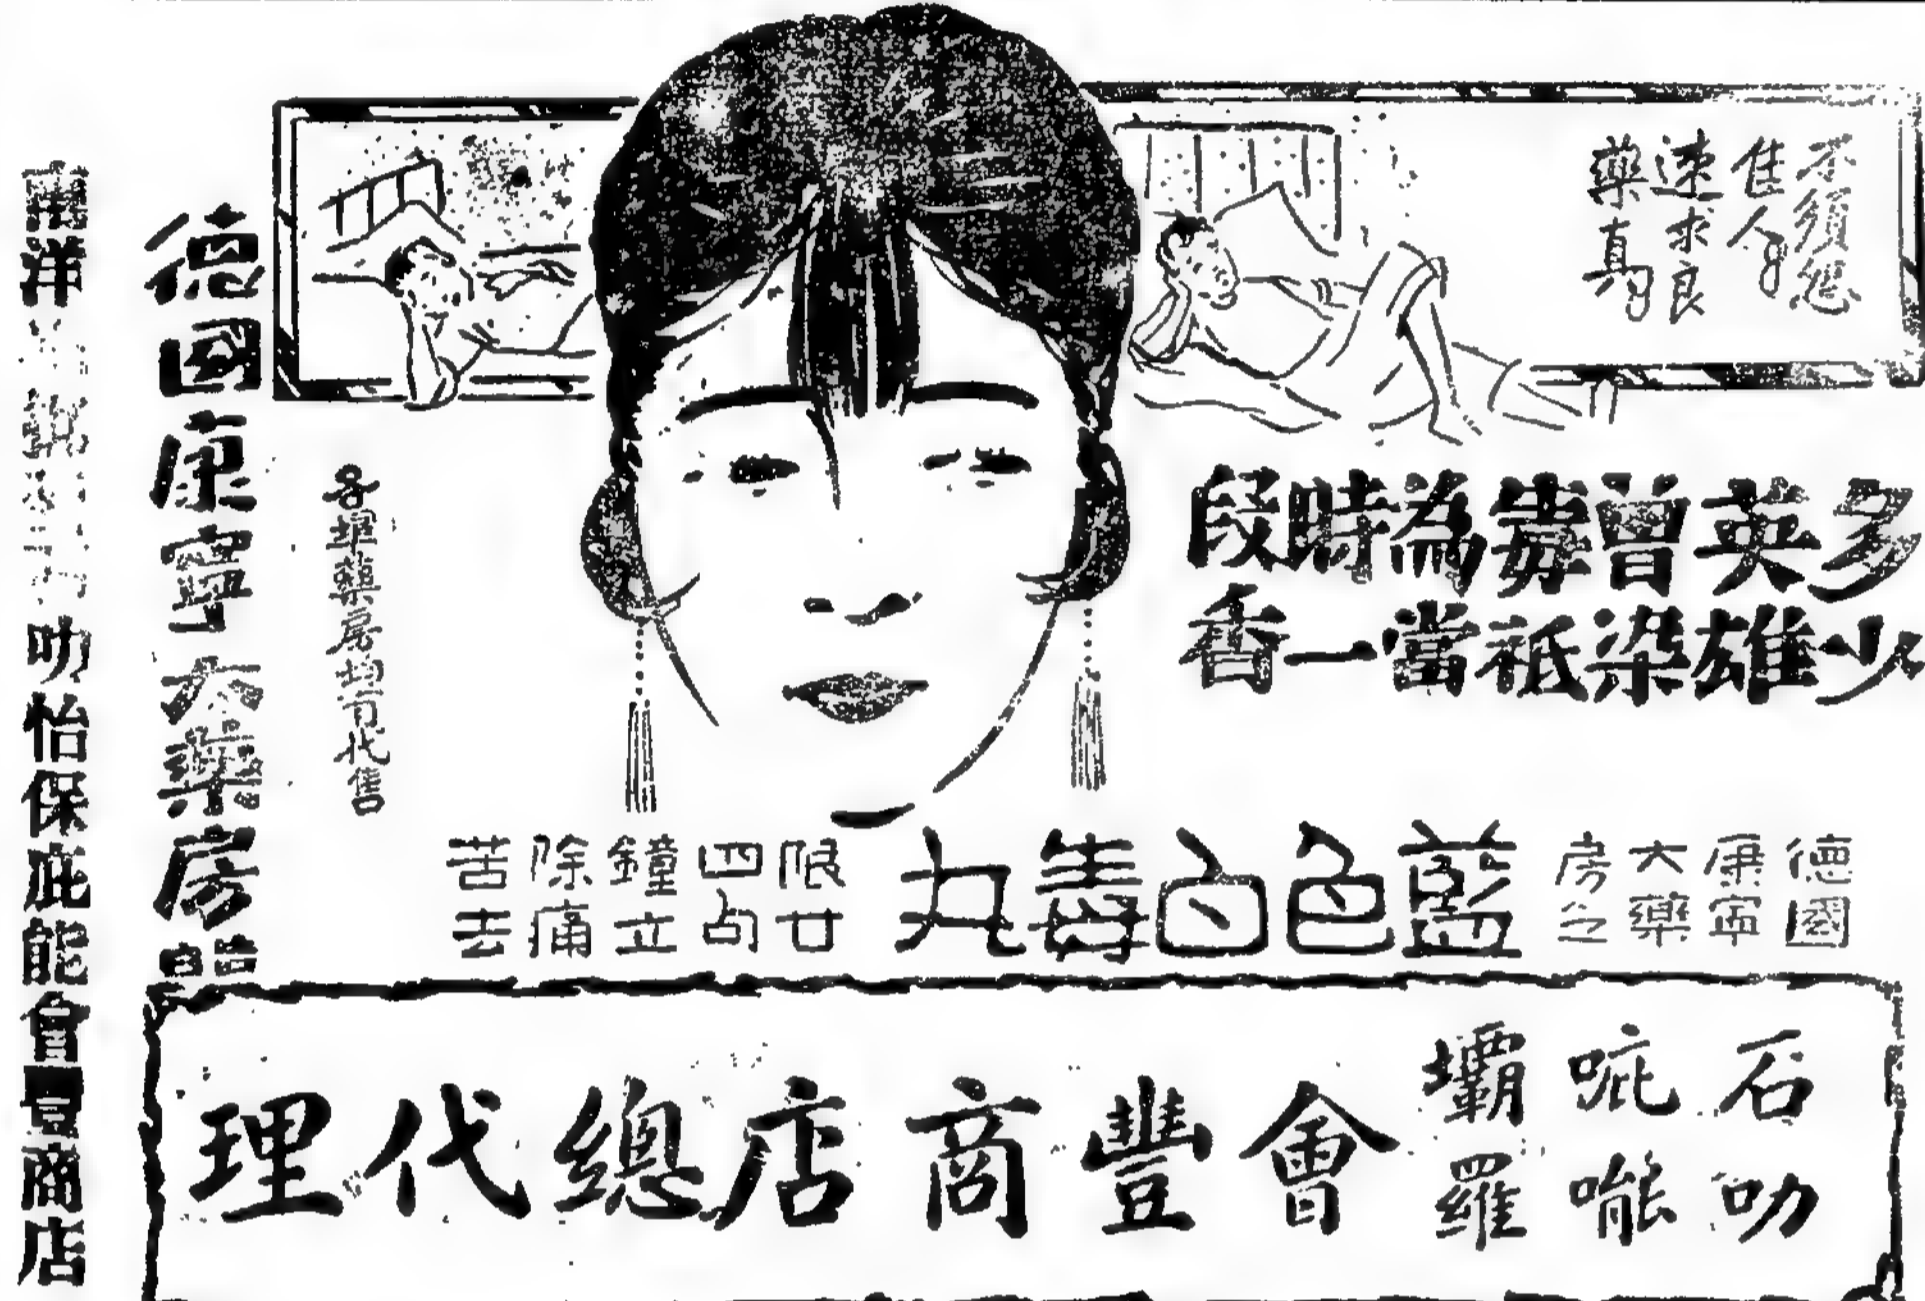 不須怨
佳人
速求良
藥真
多少英雄曾染毒祗為當時一段香
德國康寧大藥房之
藍色白毒丸
限廿四占鐘立除痛苦去
各埠藥房均有代售
德國康寧大藥房
石叻
吡㗰
壩羅
會豐商店總代理
南洋 叻怡保庇能會豐商店